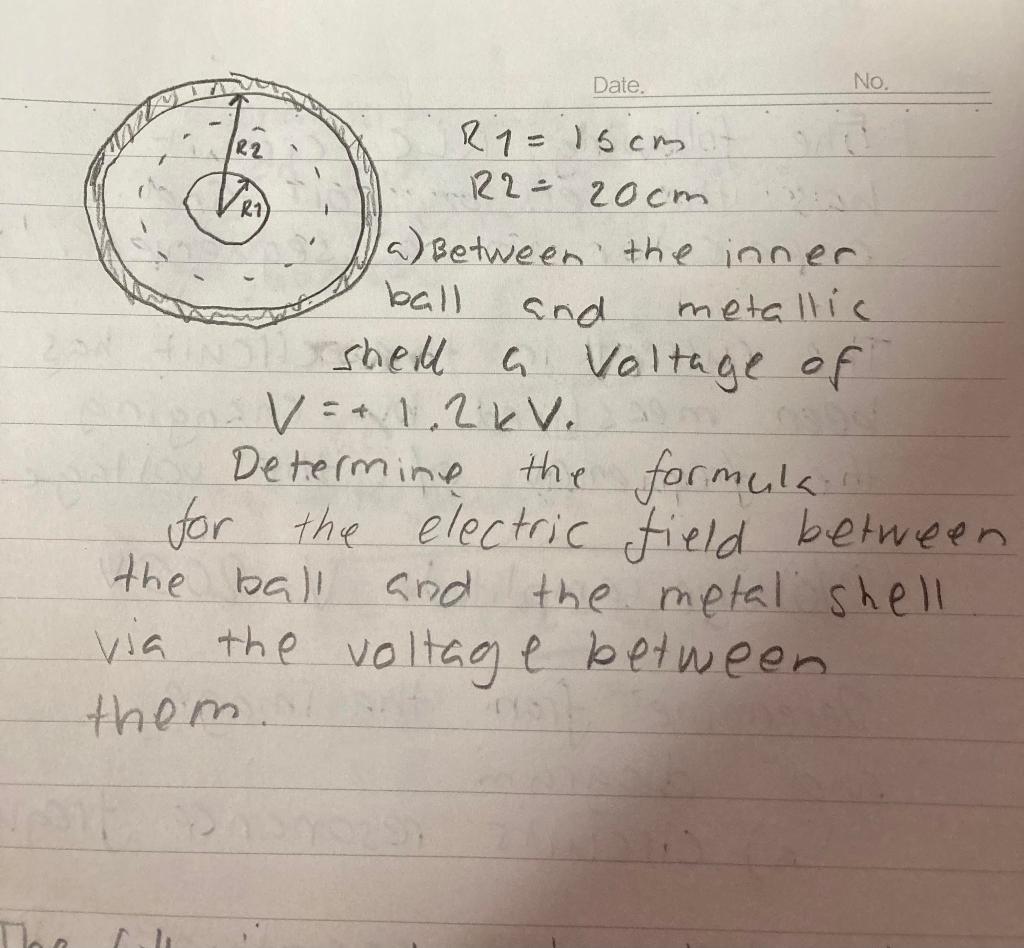 Date. No.
R1 = 15cm
R2 = 20cm
R2
R1
a) Between the inner
ball and metallic
shell a Voltage of
V = + 1.2kV.
Determine the formula
for the electric field between
the ball and the metal shell
via the voltage between
them.
The